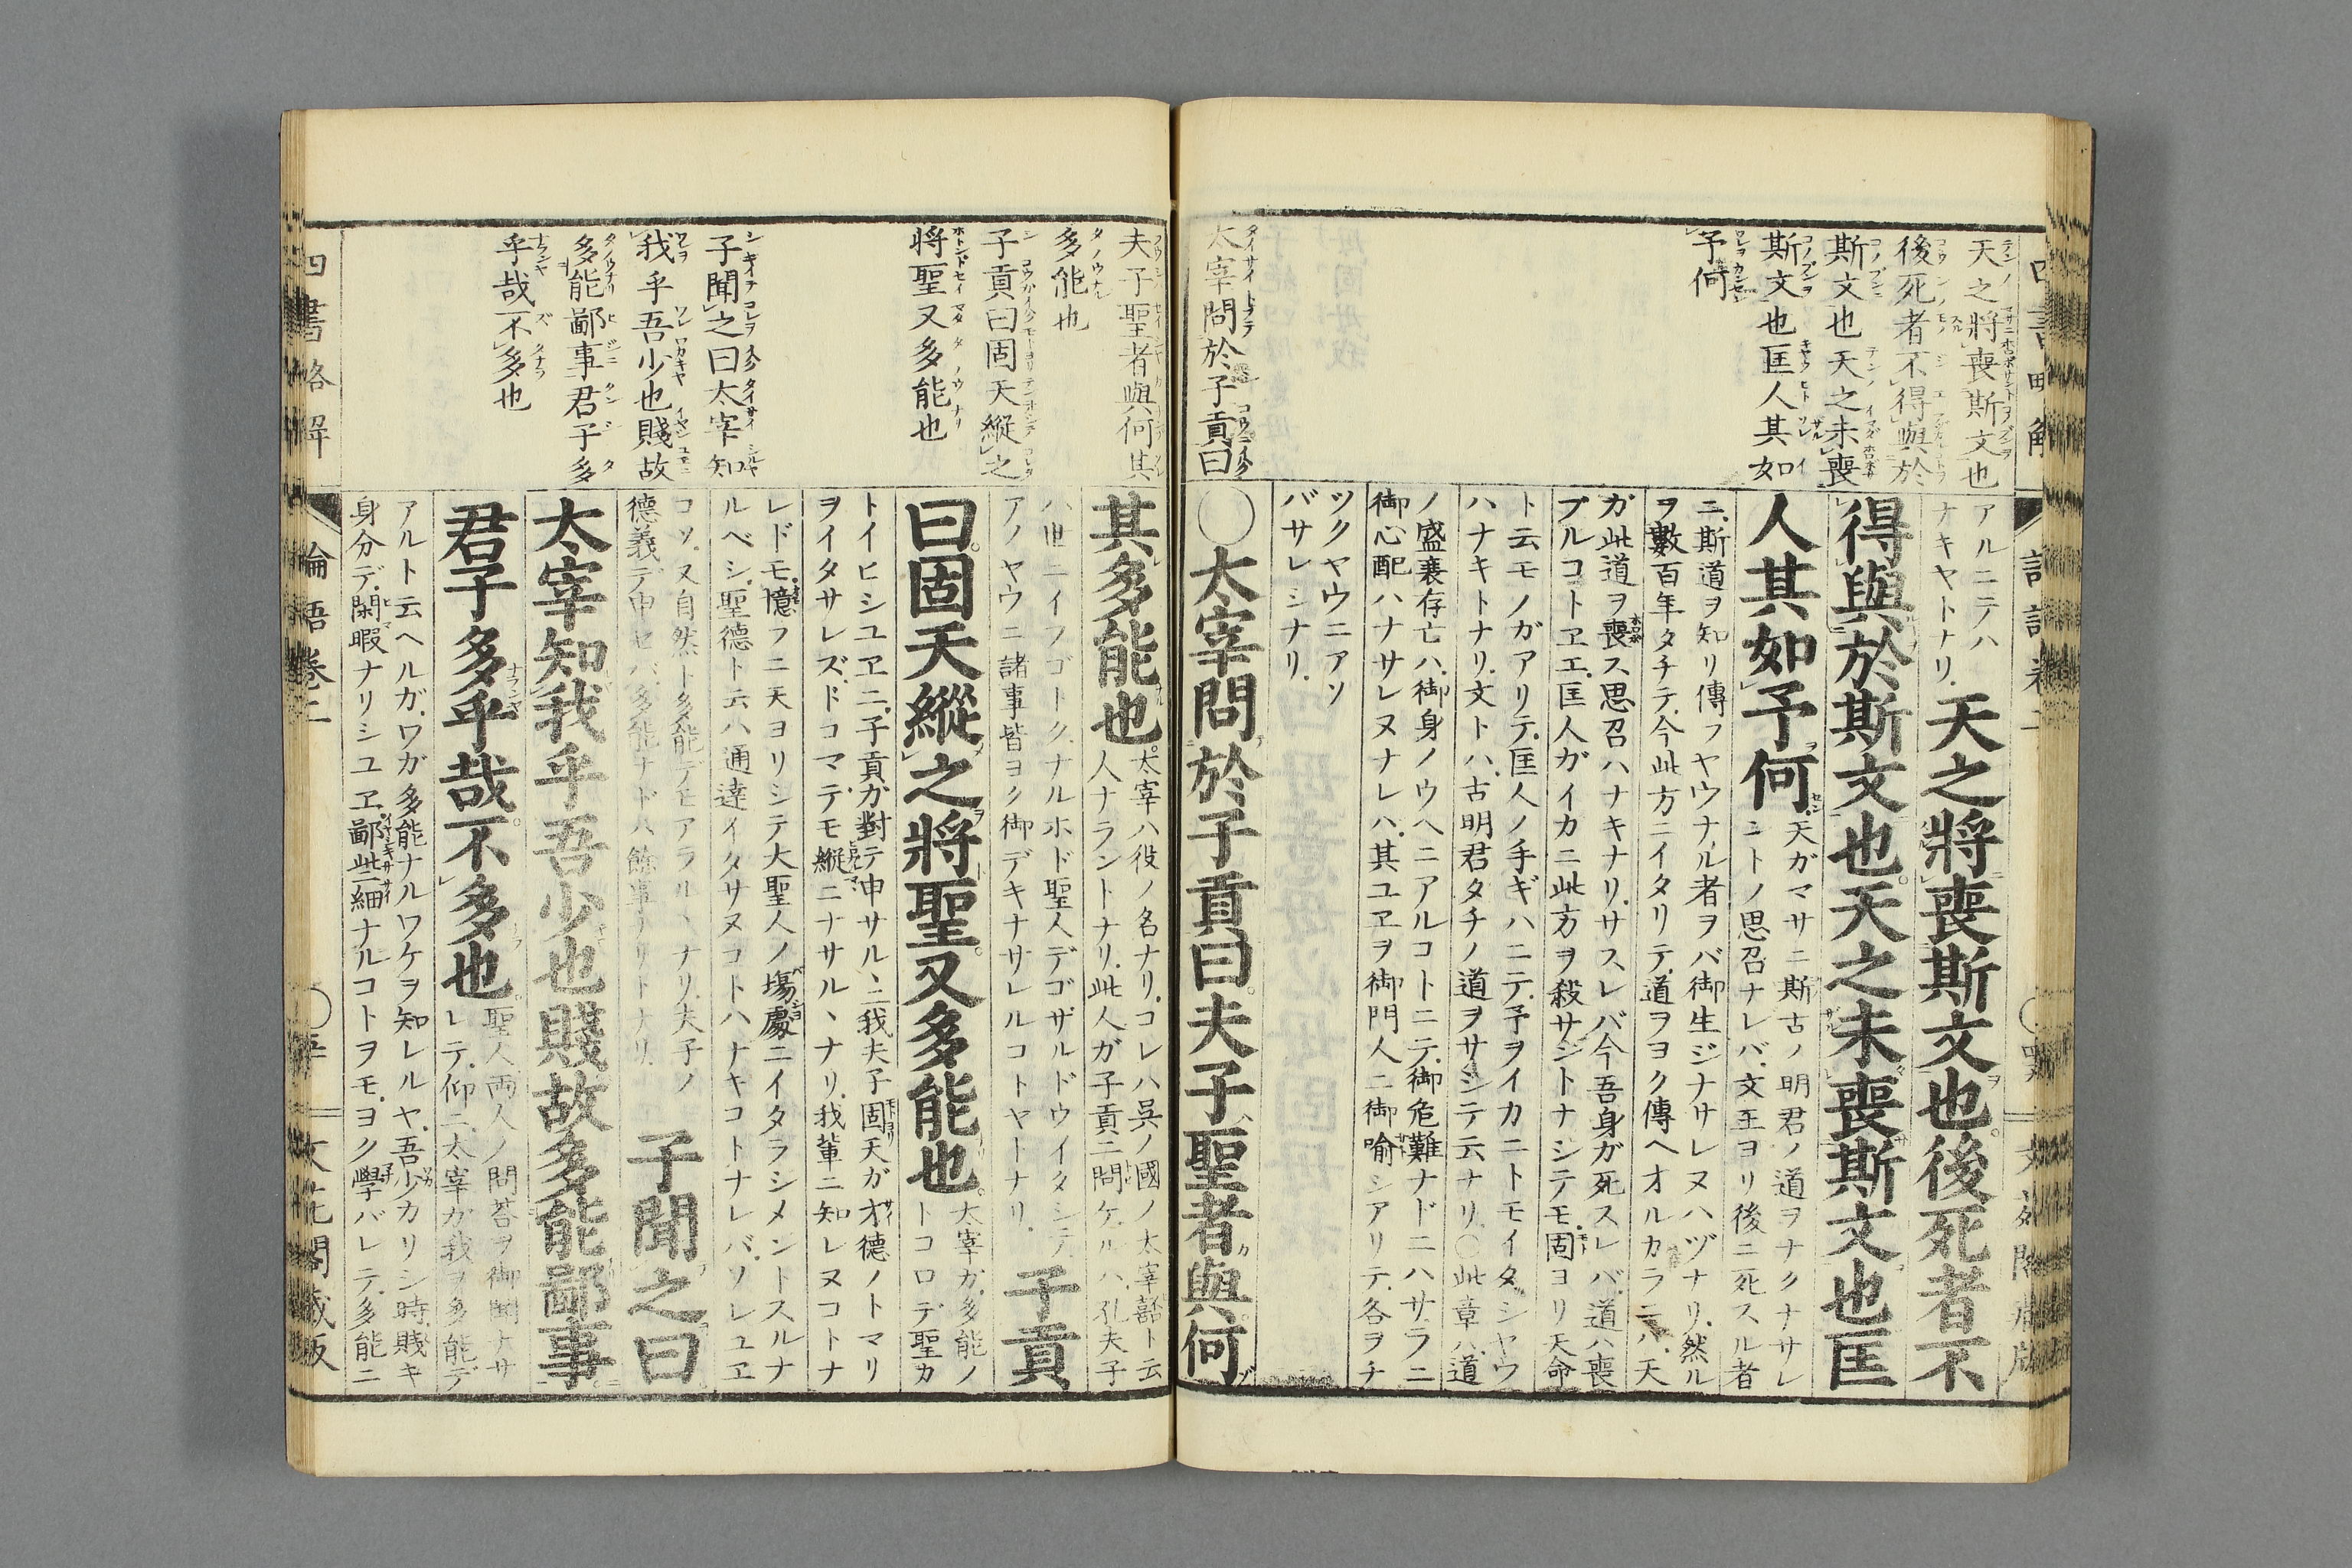 天之將喪斯文也
後死者不得與於
斯文也天之未喪
斯文也匡人其如
予何
太宰問於子貢曰
アルニテハ
ナキヤトナリ
天之將喪斯文也後死者不
得與於斯文也天之未喪斯文也匡
人其如予何
天ガマサニ斯古ノ明君ノ道ヲナクナサレ
シトノ思召ナレバ文王ヨリ後ニ死スル者
ニ斯道ヲ知リ傳フヤウナル者ヲバ御生ジナサレヌハヅナリ然ル
ヲ數百年タチテ今此方ニイタリテ道ヲヨク傳ヘオルカラニハ天
ガ此道ヲ喪ス思召ハナキナリサスレバ今吾身ガ死スレバ道ハ喪
ブルコトヱエ匡人ガイカニ此方ヲ殺サントナシテモ固ヨリ天命
ト云モノガアリテ匡人ノ手ギハニテ予ヲイカニトモイタシヤウ
ハナキトナリ文トハ古明君タチノ道ヲサシテ云ナリ○此章ハ道
ノ盛衰存亡ハ御身ノウヘニアルコトニテ御危難ナドニハサラニ
御心配ハナサレヌナレハ其ユヱヲ御門人ニ御喻シアリテ各ヲチ
ツクヤウニアソ
バサレシナリ
○太宰問於子貢曰夫子聖者與何
夫子聖者與何其
多能也
子貢曰固天縱之
將聖又多能也
子聞之曰太宰知
我乎吾少也賤故
多能鄙事君子多
乎哉不多也
其多能也
太宰ハ役ノ名ナリコレハ呉ノ國ノ太宰嚭ト云
人ナラントナリ此人ガ子貢ニ問ケルハ孔夫子
ハ世ニイフゴトクナルホド聖人デゴザルドウイタシテ
アノヤウニ諸事皆ヨク御デキナサレルコトヤトナリ
子貢
曰固天縱之將聖又多能也
太宰ガ多能ノ
トコロデ聖カ
トイヒシユヱニ子貢ガ對テ申サルヽニ我夫子固天ガ才德ノトマリ
ヲイタサレズドコマテモ縱ニナサルヽナリ我輩ニ知レヌコトナ
レドモ憶フニ天ヨリシテ大聖人ノ塲處ニイタラシメントスルナ
ルベシ聖德ト云ハ通達イタサヌコトハナキコトナレバソレユヱ
コソ又自然ト多能デモアラルヽナリ夫子ノ
德義デ申セバ多能ナドハ餘事ナリトナリ
子聞之曰
太宰知我乎吾少也賤故多能鄙事
君子多乎哉不多也
聖人兩人ノ問荅ヲ御聞ナサ
レテ仰ニ太宰ガ我ヲ多能デ
アルト云ヘルガワガ多能ナルワケヲ知レルヤ吾少カリシ時賤キ
身分デ閑暇ナリシユヱ鄙些細ナルコトヲモヨク學バレテ多能ニ
四書略解
論語卷二